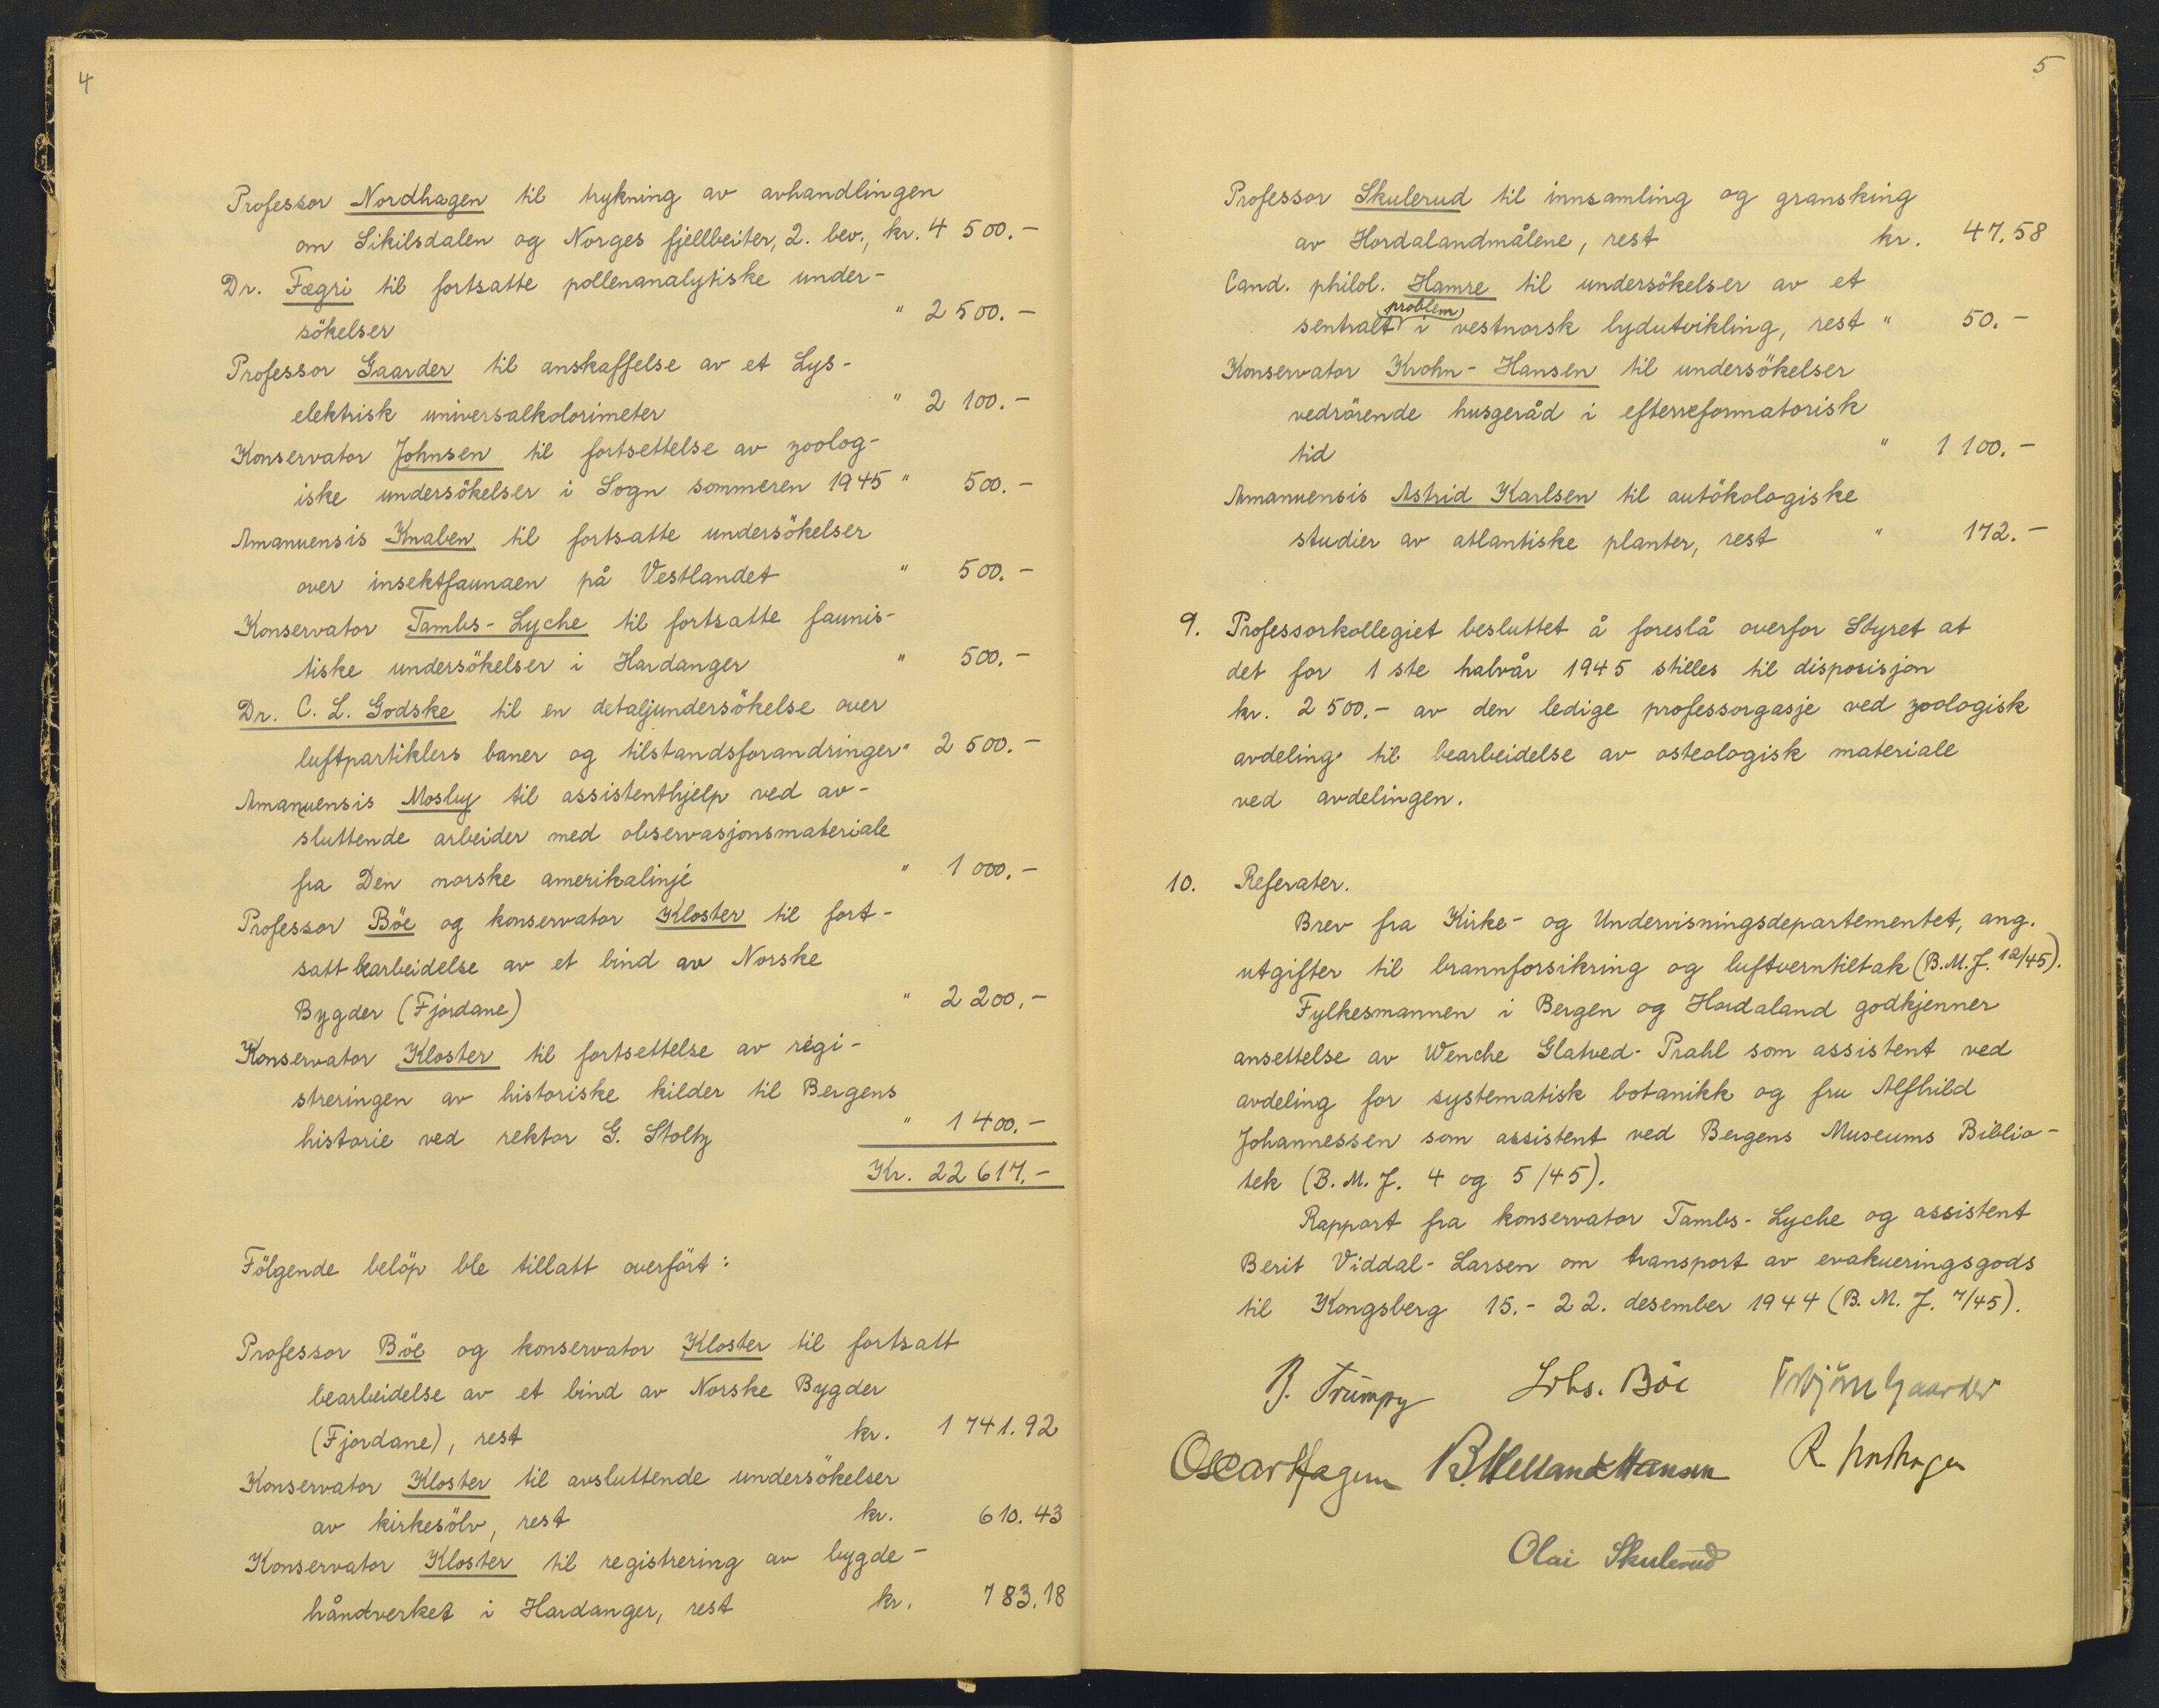 4
Professor Nordhagen til trykning av avhandlingen
om Sikilsdalen og Norges fjellbeiter, 2. bev., kr. 4 500.-
Dr. Fægri til fortsatte pollenanalytiske under-
sökelser " 2 500.-
Professor Gaarder til anskaffelse av et Lys-
elektrisk universalkolorimeter " 2 100.-
Konservator Johnsen til fortsettelse av zoolog-
iske undersökelser i Sogn sommeren 1945 " 500.-
Amanuensis Knaben til fortsatte undersökelser
over insektfaunaen på Vestlandet " 500.-
Konservator Tambs-Lyche til fortsatte faunis-
tiske undersökelser i Hardanger " 500.-
Dr. C. L. Godske til en detaljundersökelse over
luftpartiklers baner og tilstandsforandringer " 2 500.-
Amanuensis Mosby til assistenthjelp ved av-
sluttende arbeider med observasjonsmateriale
fra Den norske amerikalinje " 1 000.-
Professor Böe og konservator Kloster til fort-
satt bearbeidelse av et bind av Norske
Bygder (Fjordane) " 2 200.-
Konservator Kloster til fortsettelse av regi-
streringen av historiske kilder til Bergens
historie ved rektor G. Stoltz " 1 400.-
Kr. 22 617.-
Fölgende belöp ble tillatt overfört:
Professor Böe og konservator Kloster til fortsatt
bearbeidelse av et bind av Norske Bygder
(Fjordane), rest kr. 1 741.92
Konservator Kloster til avsluttende undersökelser
av kirkesölv, rest kr. 610.43
Konservator Kloster til registrering av bygde-
håndverket i Hardanger, rest kr. 783.18
5
Professor Skulerud til innsamling og gransking
av Hordalandmålene, rest kr. 47.58
Cand. philol. Hamre til undersökelser av et
sentralt problem i vestnorsk lydutvikling, rest " 50.-
Konservator Krohn-Hansen til undersökelser
vedrörende husgeråd i efterreformatorisk
tid " 1 100.-
Amanuensis Astrid Karlsen til autökologiske
studier av atlantiske planter, rest " 172.-
9. Professorkollegiet besluttet å foreslå overfor Styret at
det for 1 ste halvår 1945 stilles til disposisjon
kr. 2 500.- av den ledige professorgasje ved zoologisk
avdeling til bearbeidelse av osteologisk materiale
ved avdelingen.
10. Referater.
Brev fra Kirke- og Undervisningsdepartementet, ang.
utgifter til brannforsikring og luftverntiltak (B.M.J. 12/45).
Fylkesmannen i Bergen og Hordaland godkjenner
ansettelse av Wenche Glatved-Prahl som assistent ved
avdeling for systematisk botanikk og fru Alfhild
Johannessen som assistent ved Bergens Museums Biblio-
tek (B. M. J. 4 og 5/45).
Rapport fra konservator Tambs-Lyche og assistent
Berit Viddal-Larsen om transport av evakueringsgods
til Kongsberg 15.-22. desember 1944 (B. M. J. 7/45).
B. Trumpy Johs. Böe Torbjörn Gaarder
Oscar Hagem B. Helland-Hansen R. Nordhagen
Olai Skulerud